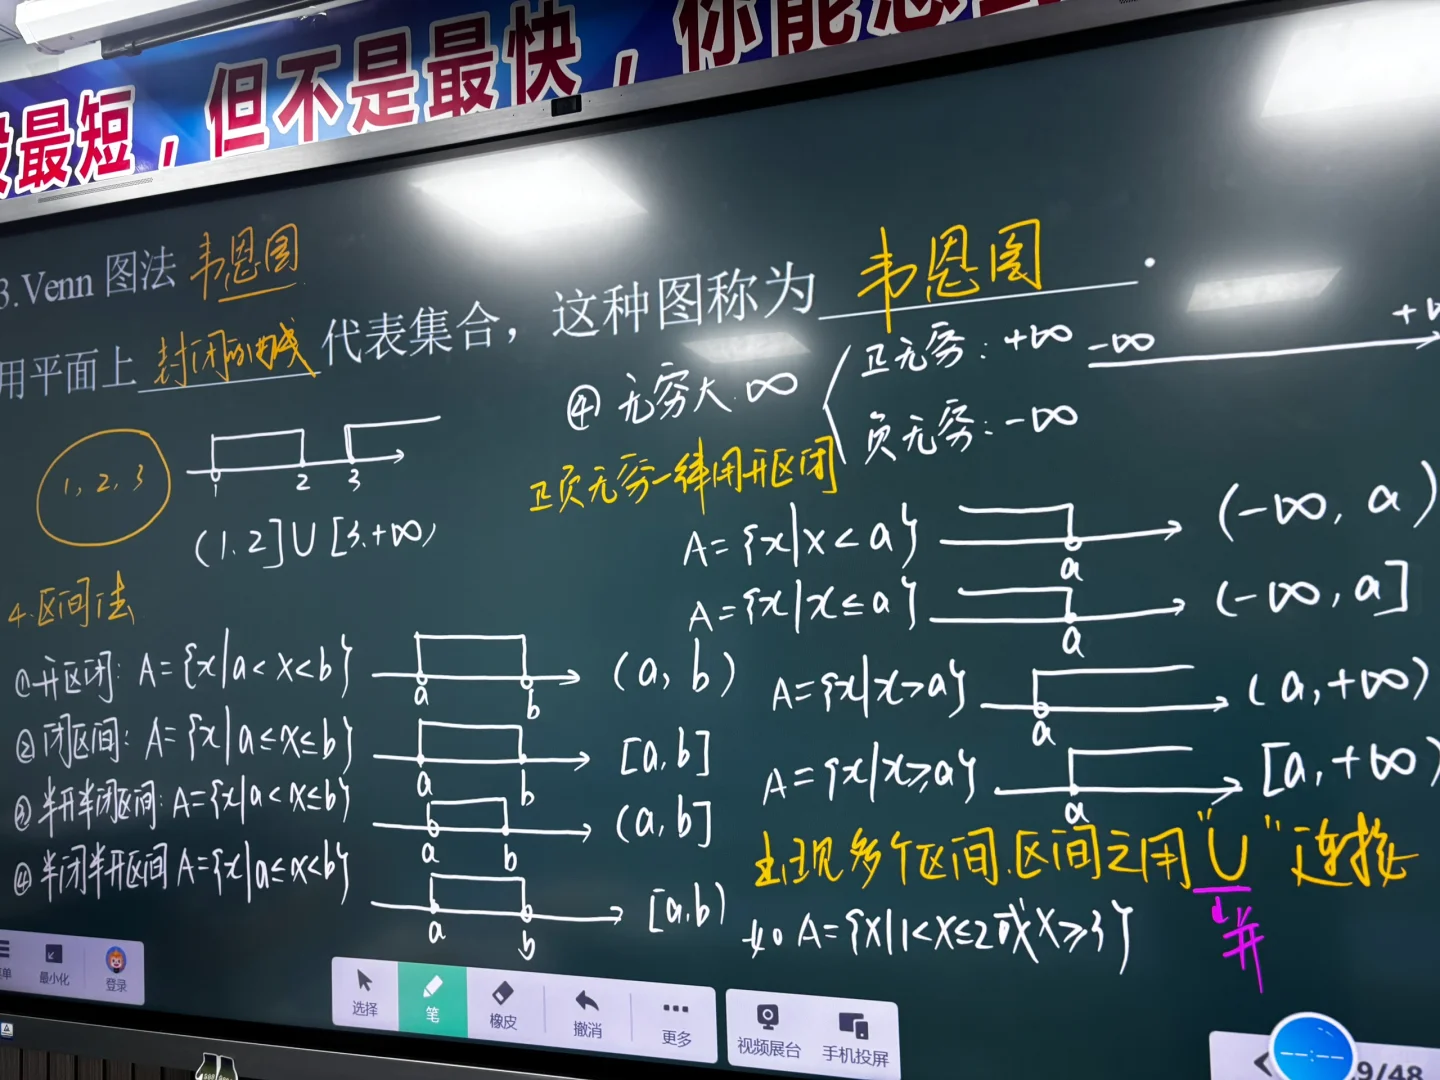 最短，但不是最快，你能
3.Venn 图法 韦恩图
用平面上 封闭的曲线 代表集合，这种图称为 韦恩图.
1, 2, 3
1 2 3
(1.2]∪[3.+∞)
④ 无穷大.∞
正无穷：+∞
负无穷：-∞
-∞
正负无穷一律用开区间
A={x|x<a} a (-∞, a)
A={x|x≤a} a (-∞, a]
A={x|x>a} a (a,+∞)
A={x|x≥a} a [a,+∞)
4.区间法
①开区间: A={x|a<x<b} a b (a, b)
②闭区间: A={x|a≤x≤b} a b [a,b]
③半开半闭区间: A={x|a<x≤b} a b (a,b]
④半闭半开区间 A={x|a≤x<b} a b [a.b)
出现多个区间.区间之用"∪"连接
并
如 A={x|1<x≤2或x≥3}
最小化
登录
选择
笔
橡皮
撤消
更多
视频展台
手机投屏
9/48